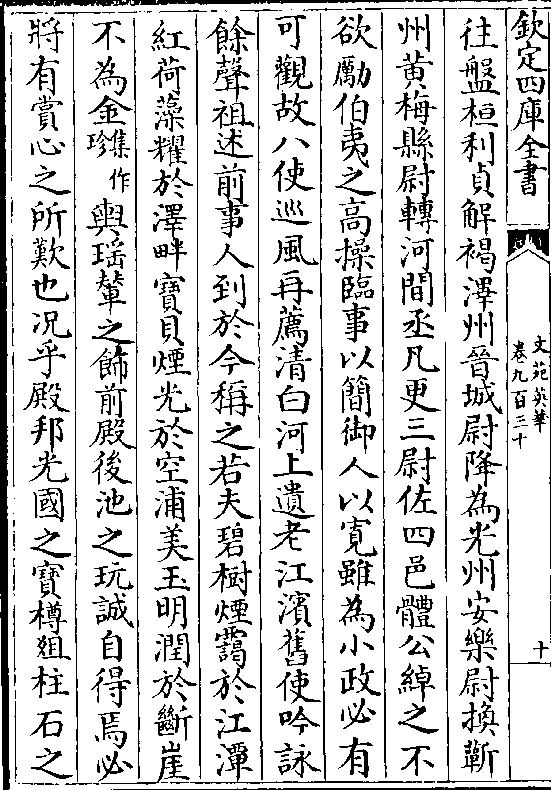 欽定四庫全書
文苑英華
卷九百三十
十
往盤桓利貞解褐澤州晉城尉降為光州安樂尉換蘄
州黄梅縣尉轉河間丞凡更三尉佐四邑體公綽之不
欲勵伯夷之高操臨事以簡御人以寛雖為小政必有
可觀故八使巡風再薦清白河上遺老江濱舊使吟詠
餘聲祖述前事人到於今稱之若夫碧樹煙靄於江潭
紅荷藻耀於澤畔寶貝煙光於空浦美玉明潤於斷崖
不為金集作珍輿瑶輦之飾前殿後池之玩誠自得焉必
將有賞心之所歎也况乎殿邦光國之寶樽俎柱石之